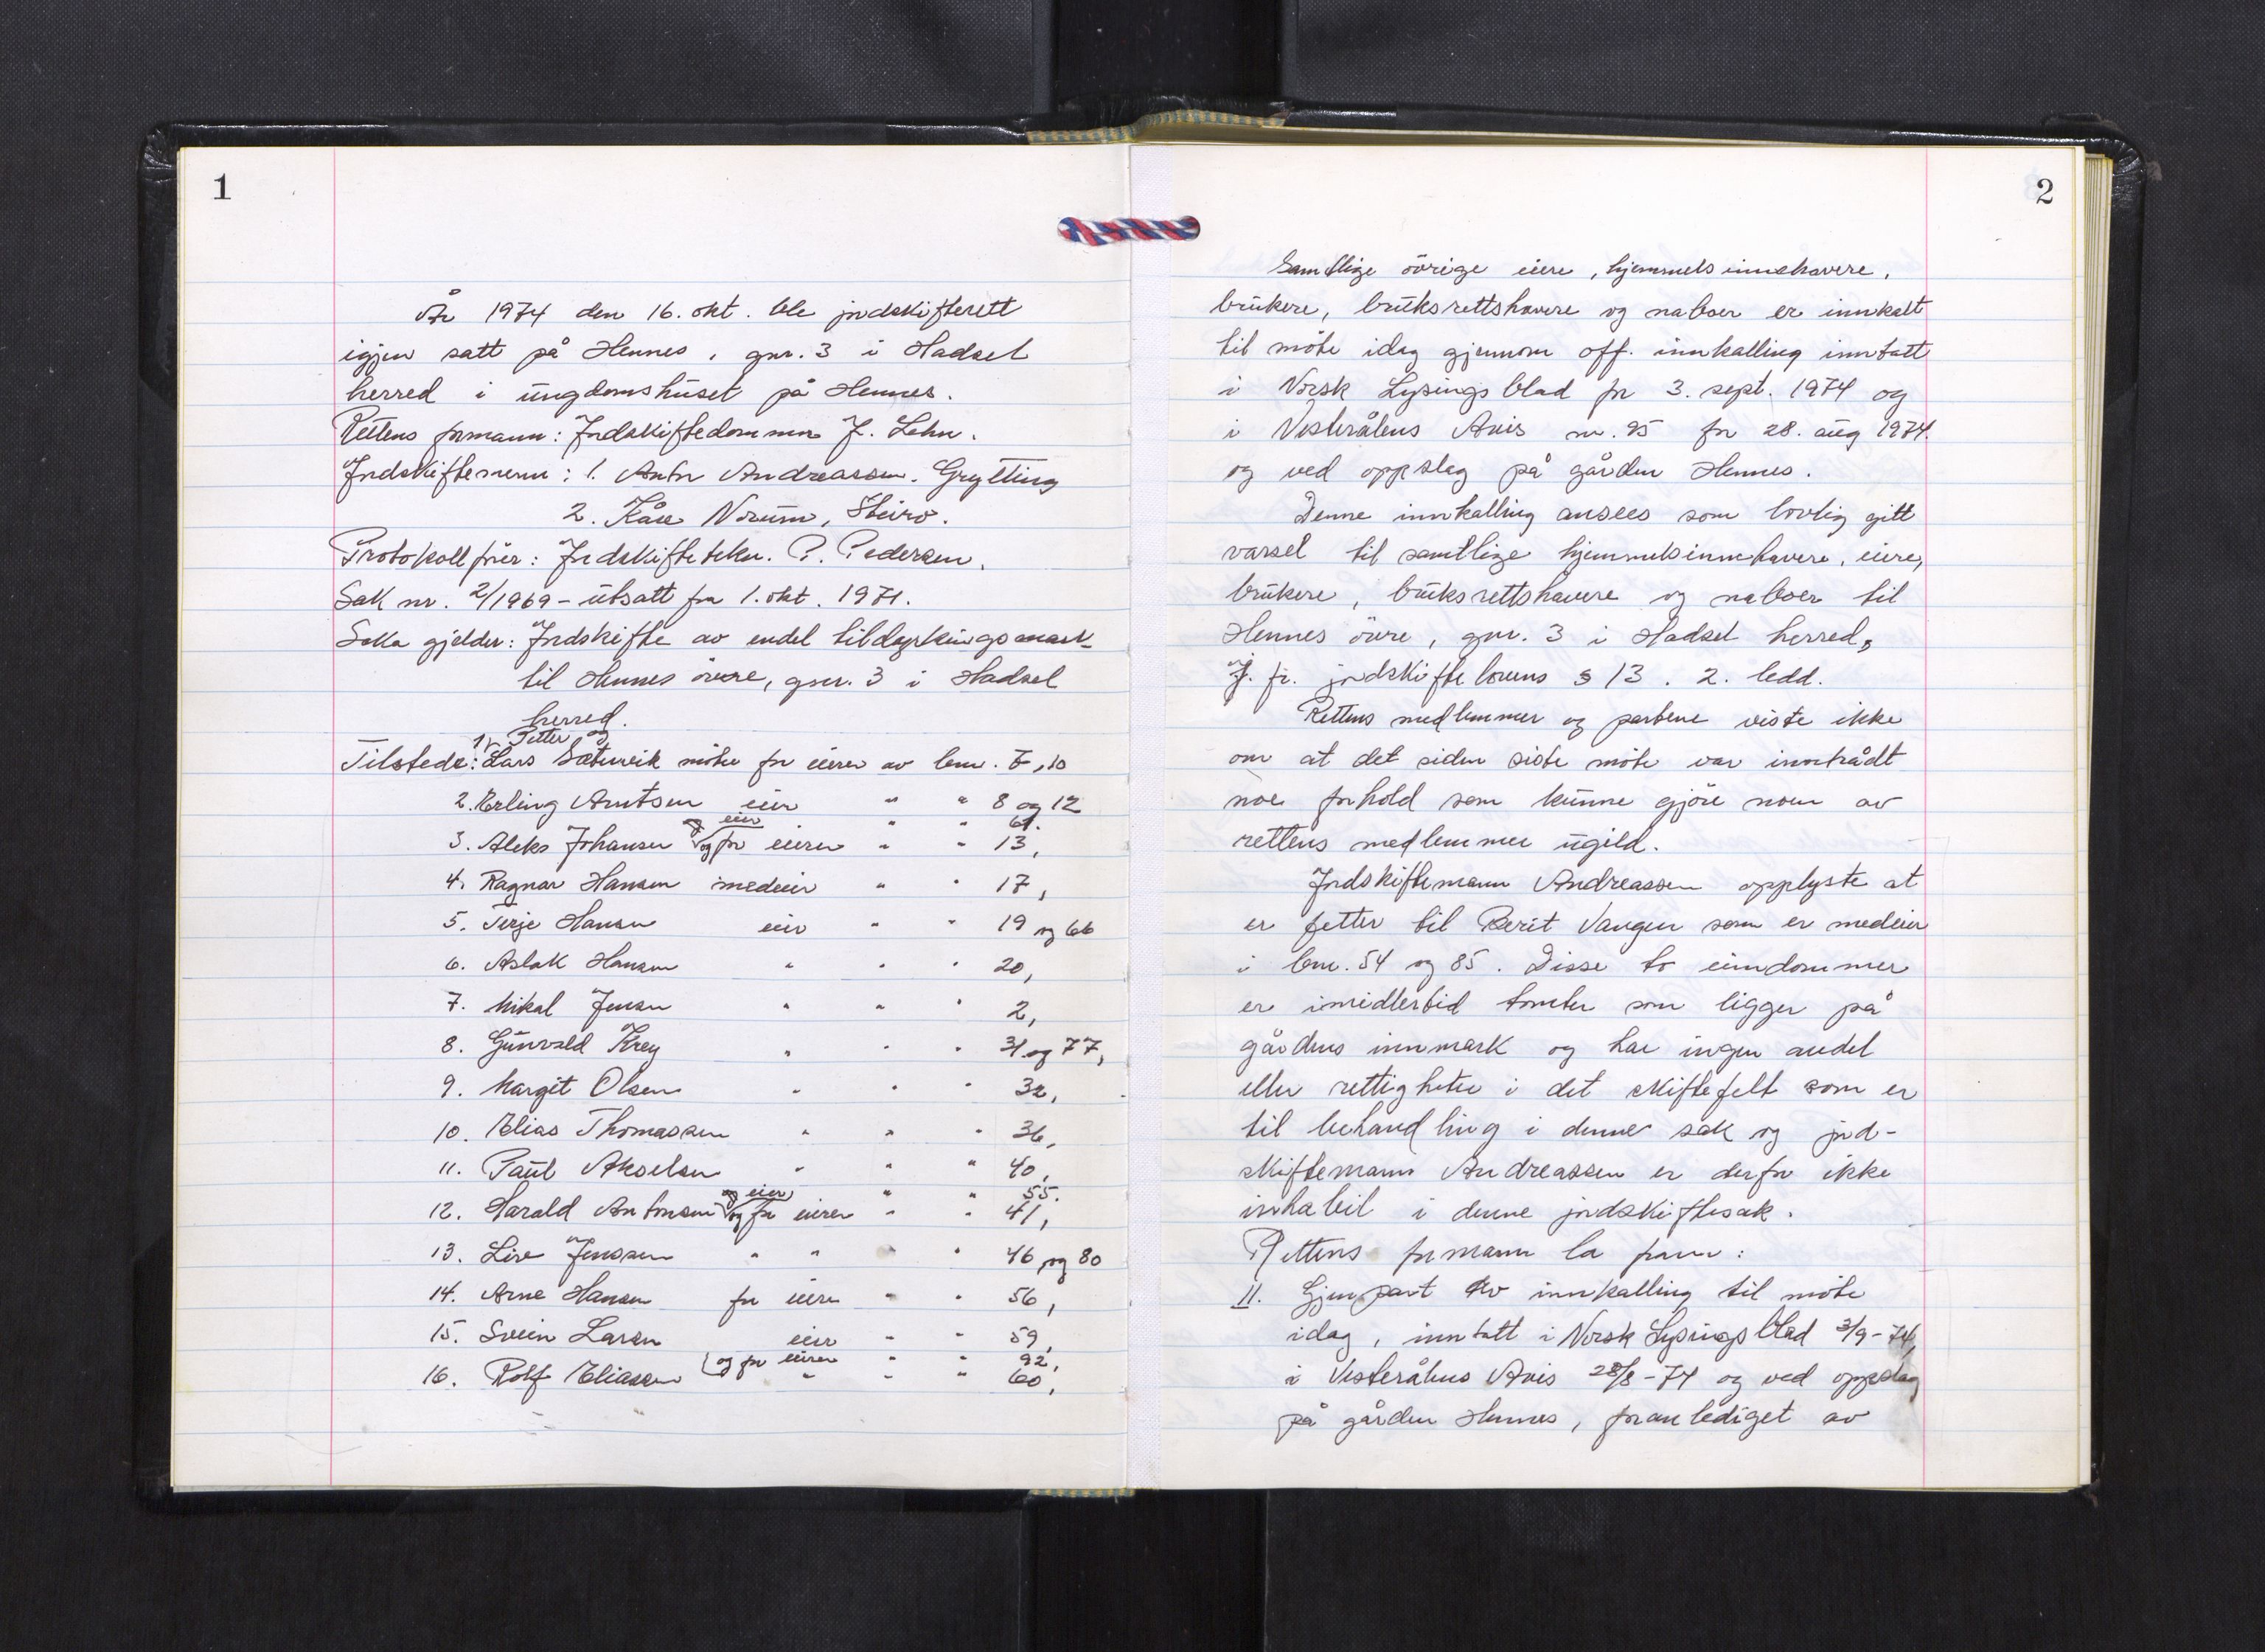 1
År 1974 den 16. okt. ble jordskifterett
igjen satt på Hennes, gnr. 3 i Hadsel
herred i ungdomshuset på Hennes.
Rettens formann: Jordskiftedommer J. Lehn.
Jordskiftemenn: 1. Anton Andreassen. Grytting
2. Kåre Norum, Steiro.
Protokollfører: Jordskiftetekn. P. Pedersen.
Sak nr. 2/1969 - utsatt fra 1. okt. 1971.
Saka gjelder: Jordskifte av endel tildyrkingsmark
til Hennes övre, gnr. 3 i Hadsel
herred.
Petter og
Tilstede: 1. Lars Sætervik möter for eieren av bnr. 7, 10
2. Erling Arntsen eier " " 8 og 12
og eier " " 61.
3. Aleks Johansen og for eieren " " 13,
4. Ragnar Hansen medeier " " 17,
5. Terje Hansen eier " " 19 og 66
6. Aslak Hansen " " " 20,
7. Mikal Jensen " " " 2,
8. Gunvald Krey " " " 31 og 77,
9. Margit Olsen " " " 32,
10. Elias Thomassen " " " 36,
11. Paul Akselsen " " " 40,
og eier " " 55.
12. Harald Antonsen og for eieren " " 41,
13. Live Jenssen " " " " 46 og 80
14. Arne Hansen for eieren " " 56,
15. Svein Larsen eier " " 59,
og for eieren " " 92,
16. Rolf Eliassen " " " 60,
2
Samtlige övrige eiere, hjemmelsinnehavere,
brukere, bruksrettshavere og naboer er innkalt
til möte idag gjennom off. innkalling inntatt
i Norsk Lysingsblad for 3. sept. 1974 og
i Vesterålens Avis nr. 95 for 28. aug 1974.
og ved oppslag på gården Hennes.
Denne innkalling ansees som lovlig gitt
varsel til samtlige hjemmelsinnehavere, eiere,
brukere, bruksrettshavere og naboer til
Hennes övre, gnr. 3 i Hadsel herred,
j. fr. jordskiftelovens § 13. 2. ledd.
Rettens medlemmer og partene viste ikke
om at det siden siste möte var inntrådt
noe forhold som kunne gjöre noen av
rettens medlemmer ugild.
Jordskiftemann Andreassen opplyste at
er fetter til Berit Vangen som er medeier
i bnr. 54 og 85. Disse to eiendommer
er imidlertid tomter som ligger på
gårdens innmark og har ingen andel
eller rettigheter i det skiftefelt som er
til behandling i denne sak og jord-
skiftemann Andreassen er derfor ikke
inhabil i denne jordskiftesak.
Rettens formann la fram:
11. Gjenpart av innkalling til möte
idag, inntatt i Norsk Lysingsblad 3/9-74,
i Vesterålens Avis 28/8-74 og ved oppslag
på gården Hennes, foranlediget av